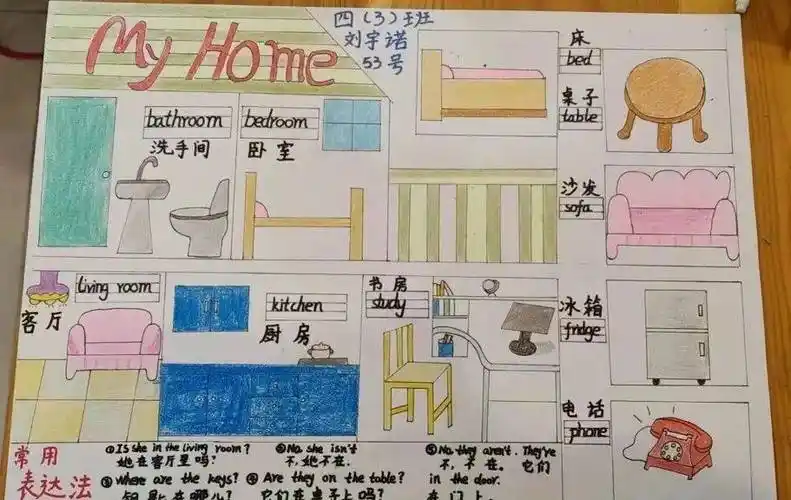 My Home
四（3）班
刘宇诺
53号
bathroom
洗手间
bedroom
卧室
床
bed
桌子
table
沙发
sofa
living room
客厅
kitchen
厨房
书房
study
冰箱
fridge
电话
phone
常用
表达法
①Is she in the living room?
她在客厅里吗?
②No, she isn't
不,她不在.
③Where are the keys?
钥匙在哪儿?
④Are they on the table?
它们在桌子上吗?
⑤No, they aren't. They're
不,不在. 它们
in the door.
在门上.